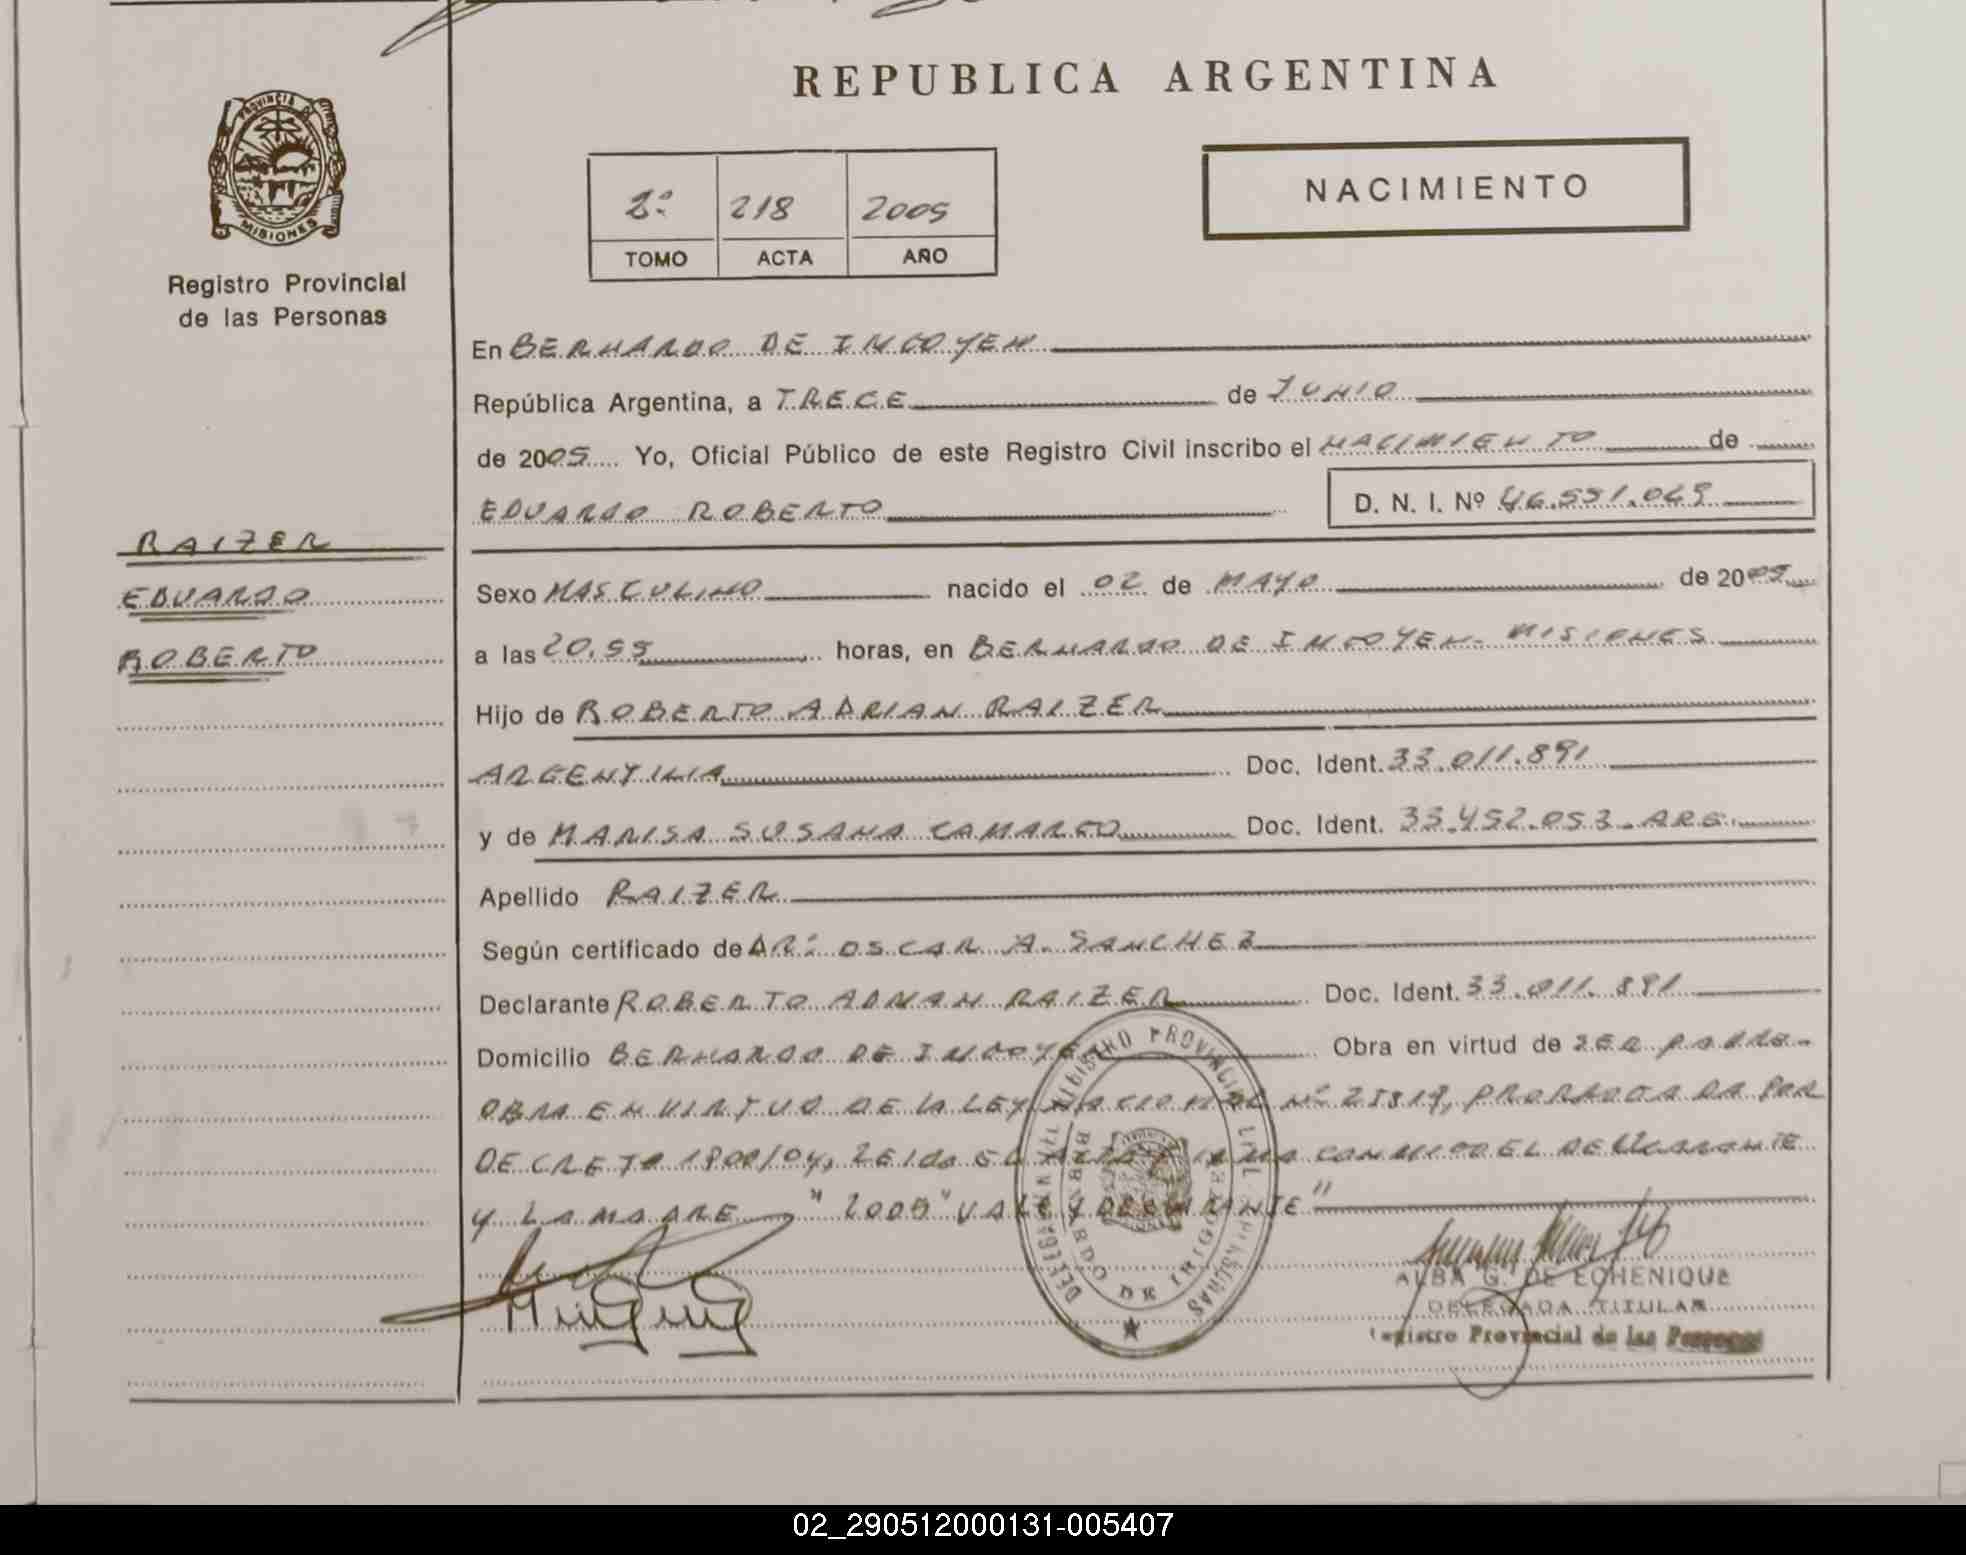 REPUBLICA ARGENTINA
PROVINCIA DE MISIONES
Registro Provincial
de las Personas
2º 218 2005
TOMO ACTA AÑO
NACIMIENTO
En BERNARDO DE IRIGOYEN
República Argentina, a TRECE de JUNIO
de 2005 Yo, Oficial Público de este Registro Civil inscribo el NACIMIENTO de
EDUARDO ROBERTO D. N. I. Nº 46.551.049
RAIZER
EDUARDO
ROBERTO
Sexo MASCULINO nacido el 02 de MAYO de 2005
a las 20,55 horas, en BERNARDO DE IRIGOYEN - MISIONES
Hijo de ROBERTO ADRIAN RAIZER
ARGENTINA Doc. Ident. 33.011.891
y de MARISA SUSANA CAMARGO Doc. Ident. 33.452.053 - ARG.
Apellido RAIZER
Según certificado de DR. OSCAR A. SANCHEZ
Declarante ROBERTO ADRIAN RAIZER Doc. Ident. 33.011.891
Domicilio BERNARDO DE IRIGOYEN Obra en virtud de SER PADRE.-
OBRA EN VIRTUD DE LA LEY NACIONAL Nº 25819, PRORROGADA POR
DECRETO 1800/04, LEIDA EL ACTA FIRMA CONMIGO EL DECLARANTE
Y LA MADRE "2005" VALE Y DECLARANTE"
REGISTRO PROVINCIAL DE LAS PERSONAS
BERNARDO DE IRIGOYEN
ALBA G. DE ECHENIQUE
DELEGADA TITULAR
Registro Provincial de las Personas
02_290512000131-005407